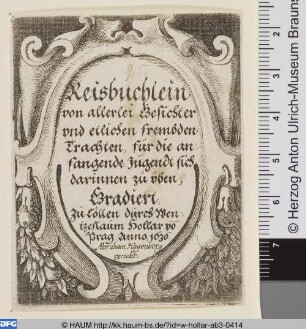 Reisbuchlein
von allerlei Gesichter
vnd etlichen frembden
Trachten, für die an
fangende Jugendt sich
darinnen zu vben,
Gradiert
zu Cöllen durch Wen
tzeslaum Hollar vō
Prag. Anno 1636
Abraham Hogenberg
excudit.
© Herzog Anton Ulrich-Museum Braun
1
2
3
4
5
6
7
DFG
© HAUM http://kk.haum-bs.de/?id=w-hollar-ab3-0414